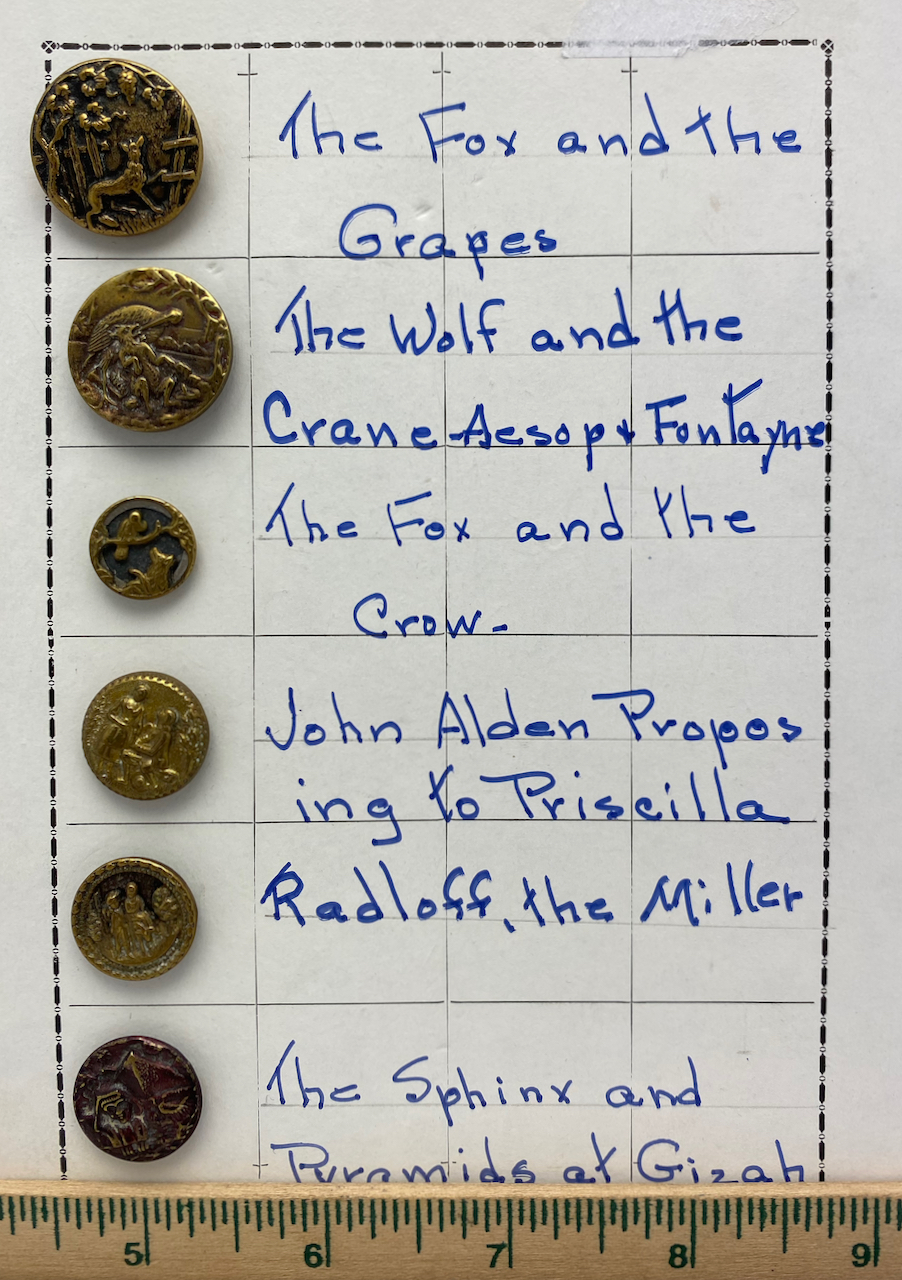 The Fox and the
Grapes
The Wolf and the
Crane-Aesop & Fontayne
The Fox and the
Crow-
John Alden Propos
ing to Priscilla
Radloff, the Miller
The Sphinx and
Pyramids at Gizah
5 6 7 8 9